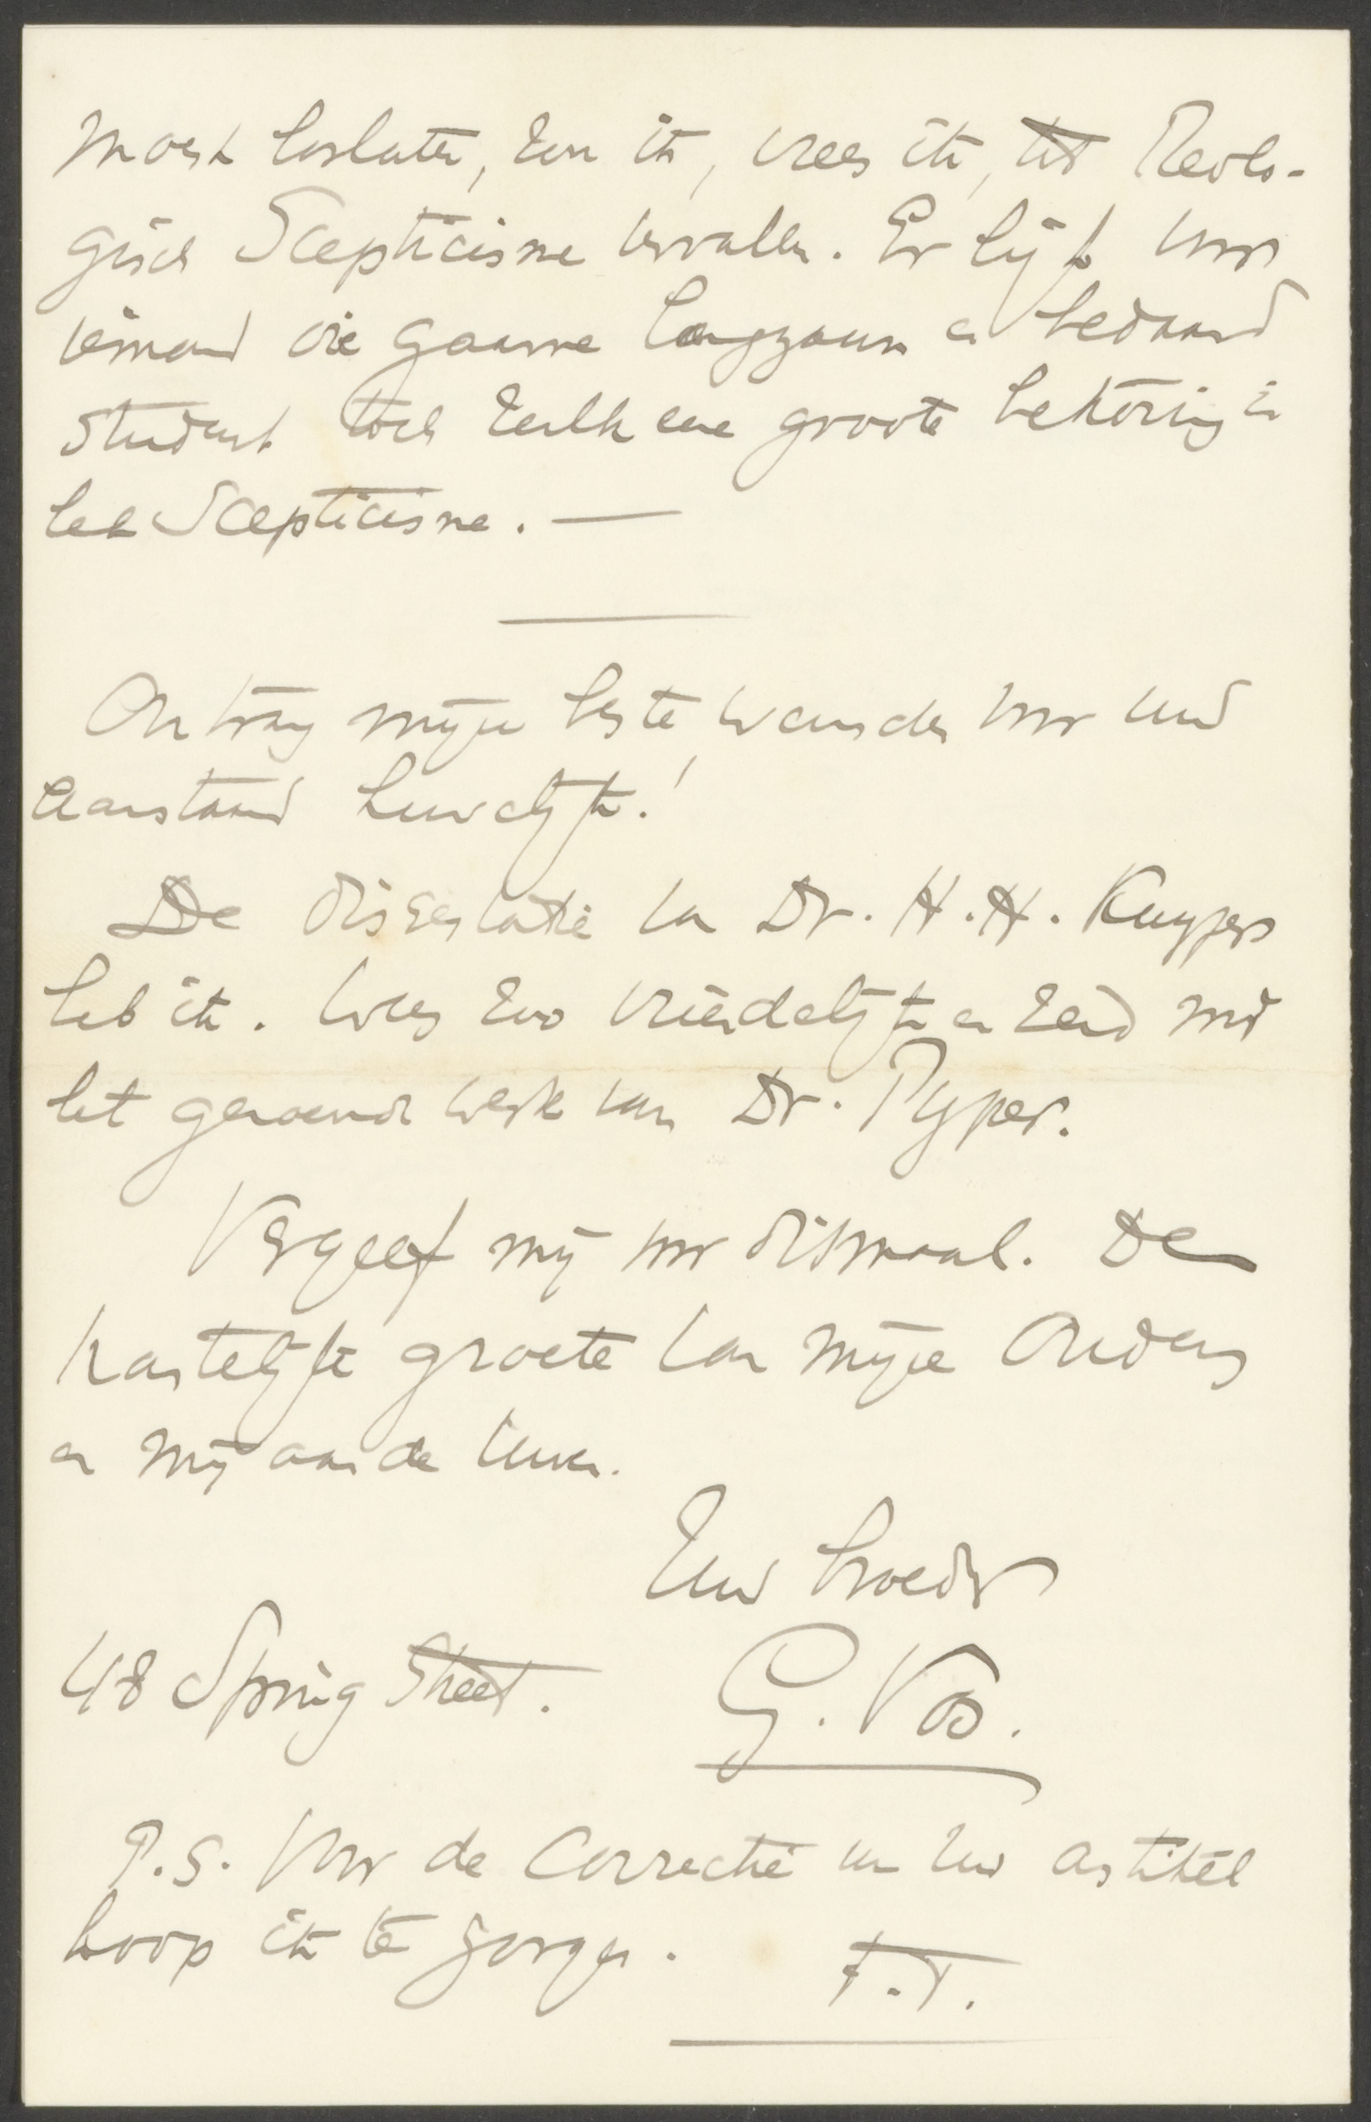 moest loslaten, zou ik, vrees ik, tot Theolo-
gisch Scepticisme vervallen. Er ligt voor
iemand die gaarne langzaam en bedaard
studeert toch zulk eene groote bekoring in
het Scepticisme. —
Ontvang mijne beste wenschen voor uw
aanstaand huwelijk!
De dissertatie van Dr. H. H. Kuyper
heb ik. Wees zoo vriendelijk en zend mij
het genoemde werk van Dr. Pijper.
Vergeef mij voor ditmaal. De
hartelijke groete van mijne Ouders
en mij aan de Uwen.
Uw broeder
48 Spring Street. G. Vos.
P.S. Voor de Correctie van Uw artikel
hoop ik te zorgen. T.T.